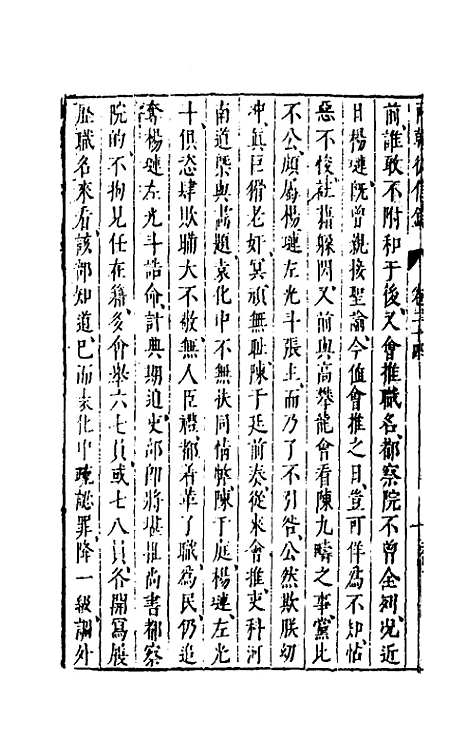 兩朝從信錄 卷二十四
前誰敢不附和于後又會推職名都察院不曾僉列况近
日楊漣旣曾親接聖諭今値會推之日豈可佯爲不知怙
惡不悛社藉躱閃又前與高攀龍會看陳九疇之事黨比
不公顧屬楊漣左光斗張主而乃了不引咎公然欺朕幼
冲眞巨猾老奸冥頑無耻陳于廷前奏從來會推吏科河
南道槩與書題袁化中不無扶同情弊陳于庭楊漣左光
十俱恣肆欺瞞大不敬無人臣禮都着革了職爲民仍追
奪楊漣左光斗誥命計典期迫吏部卽將堪推尚書都察
院的不拘見任在籍多會舉六七員或七八員各開寫履
歷職名來看該部知道巳而袁化中疏認罪降一級調外